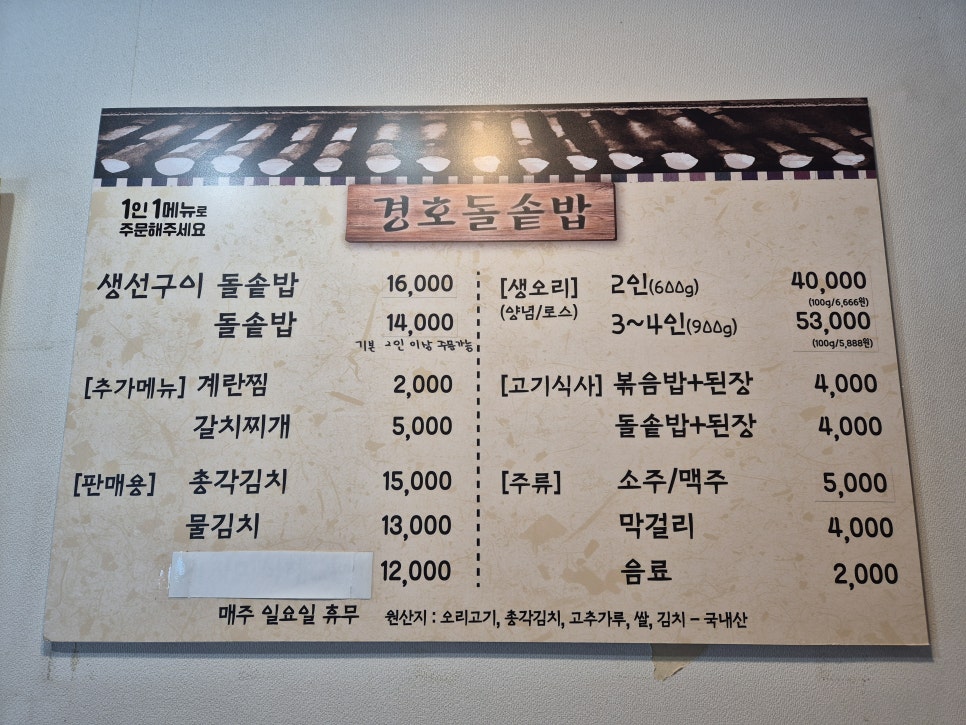 경호돌솥밥
1인 1메뉴로
주문해주세요
생선구이 돌솥밥 16,000
돌솥밥 14,000
기본 2인 이상 주문가능
[추가메뉴] 계란찜 2,000
갈치찌개 5,000
[판매용] 총각김치 15,000
물김치 13,000
12,000
[생오리] 2인(600g) 40,000
(양념/로스) (100g/6,666원)
3~4인(900g) 53,000
(100g/5,888원)
[고기식사] 볶음밥+된장 4,000
돌솥밥+된장 4,000
[주류] 소주/맥주 5,000
막걸리 4,000
음료 2,000
매주 일요일 휴무 원산지 : 오리고기, 총각김치, 고추가루, 쌀, 김치 - 국내산